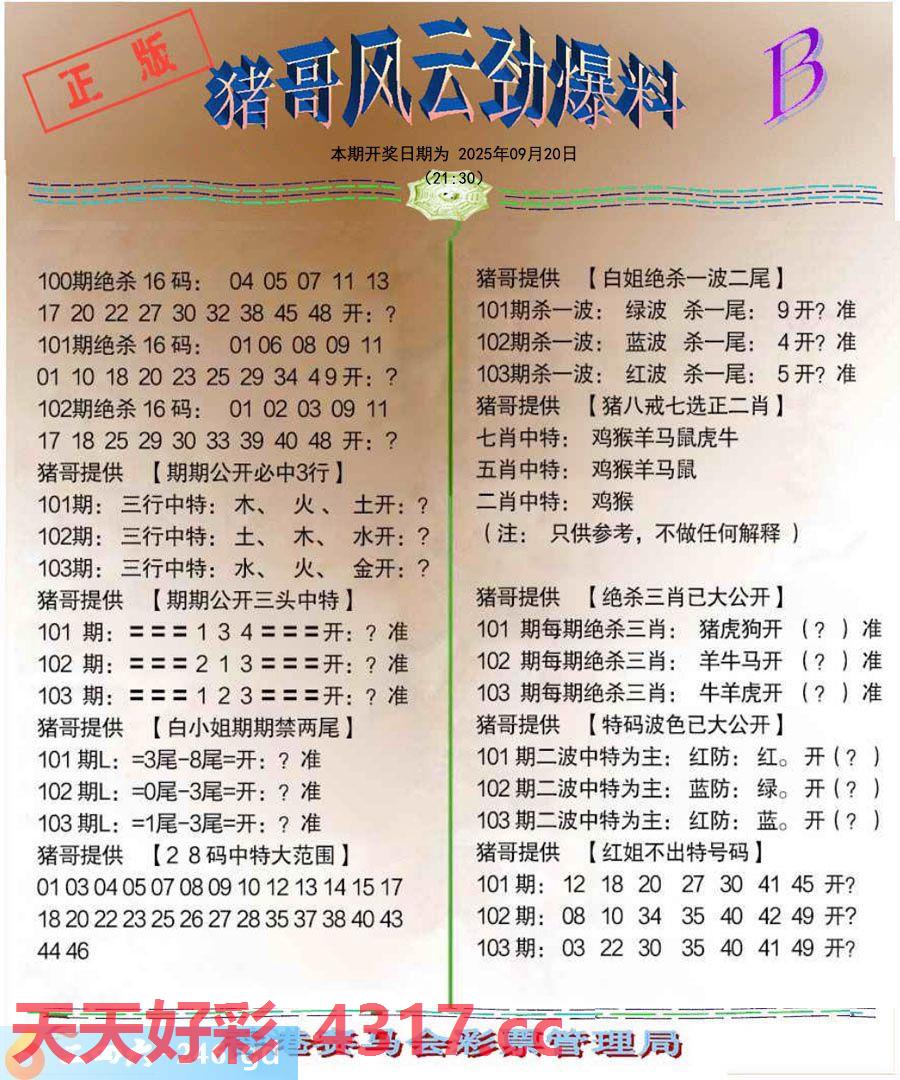 正版
猪哥风云劲爆料
B
本期开奖日期为 2025年09月20日
(21:30)
100期绝杀16码： 04 05 07 11 13
17 20 22 27 30 32 38 45 48 开：？
101期绝杀16码： 01 06 08 09 11
01 10 18 20 23 25 29 34 49开：？
102期绝杀16码： 01 02 03 09 11
17 18 25 29 30 33 39 40 48 开：？
猪哥提供 【期期公开必中3行】
101期： 三行中特： 木、 火 、 土开：？
102期： 三行中特： 土、 木、 水开：？
103期： 三行中特： 水、 火、 金开：？
猪哥提供 【期期公开三头中特】
101 期：〓〓〓1 3 4〓〓〓开：？准
102 期：〓〓〓2 1 3〓〓〓开：？准
103 期：〓〓〓1 2 3〓〓〓开：？准
猪哥提供 【白小姐期期禁两尾】
101期L：=3尾-8尾=开：？准
102期L：=0尾-3尾=开：？准
103期L：=1尾-3尾=开：？准
猪哥提供 【２８码中特大范围】
01 03 04 05 07 08 09 10 12 13 14 15 17
18 20 22 23 25 26 27 28 35 37 38 40 43
44 46
猪哥提供 【白姐绝杀一波二尾】
101期杀一波： 绿波 杀一尾： 9开？准
102期杀一波： 蓝波 杀一尾： 4开？准
103期杀一波： 红波 杀一尾： 5开？准
猪哥提供 【猪八戒七选正二肖】
七肖中特： 鸡猴羊马鼠虎牛
五肖中特： 鸡猴羊马鼠
二肖中特： 鸡猴
（注： 只供参考，不做任何解释 ）
猪哥提供 【绝杀三肖已大公开】
101 期每期绝杀三肖： 猪虎狗开 （？ ）准
102 期每期绝杀三肖： 羊牛马开 （？ ）准
103 期每期绝杀三肖： 牛羊虎开 （？ ）准
猪哥提供 【特码波色已大公开】
101期二波中特为主： 红防： 红。 开（？ ）
102期二波中特为主： 蓝防： 绿。 开（？ ）
103期二波中特为主： 红防： 蓝。 开（？ ）
猪哥提供 【红姐不出特号码】
101期： 12 18 20 27 30 41 45 开?
102期： 08 10 34 35 40 42 49 开?
103期： 03 22 30 35 40 41 49 开?
天天好彩 4317.cc
港赛马会彩票管理局